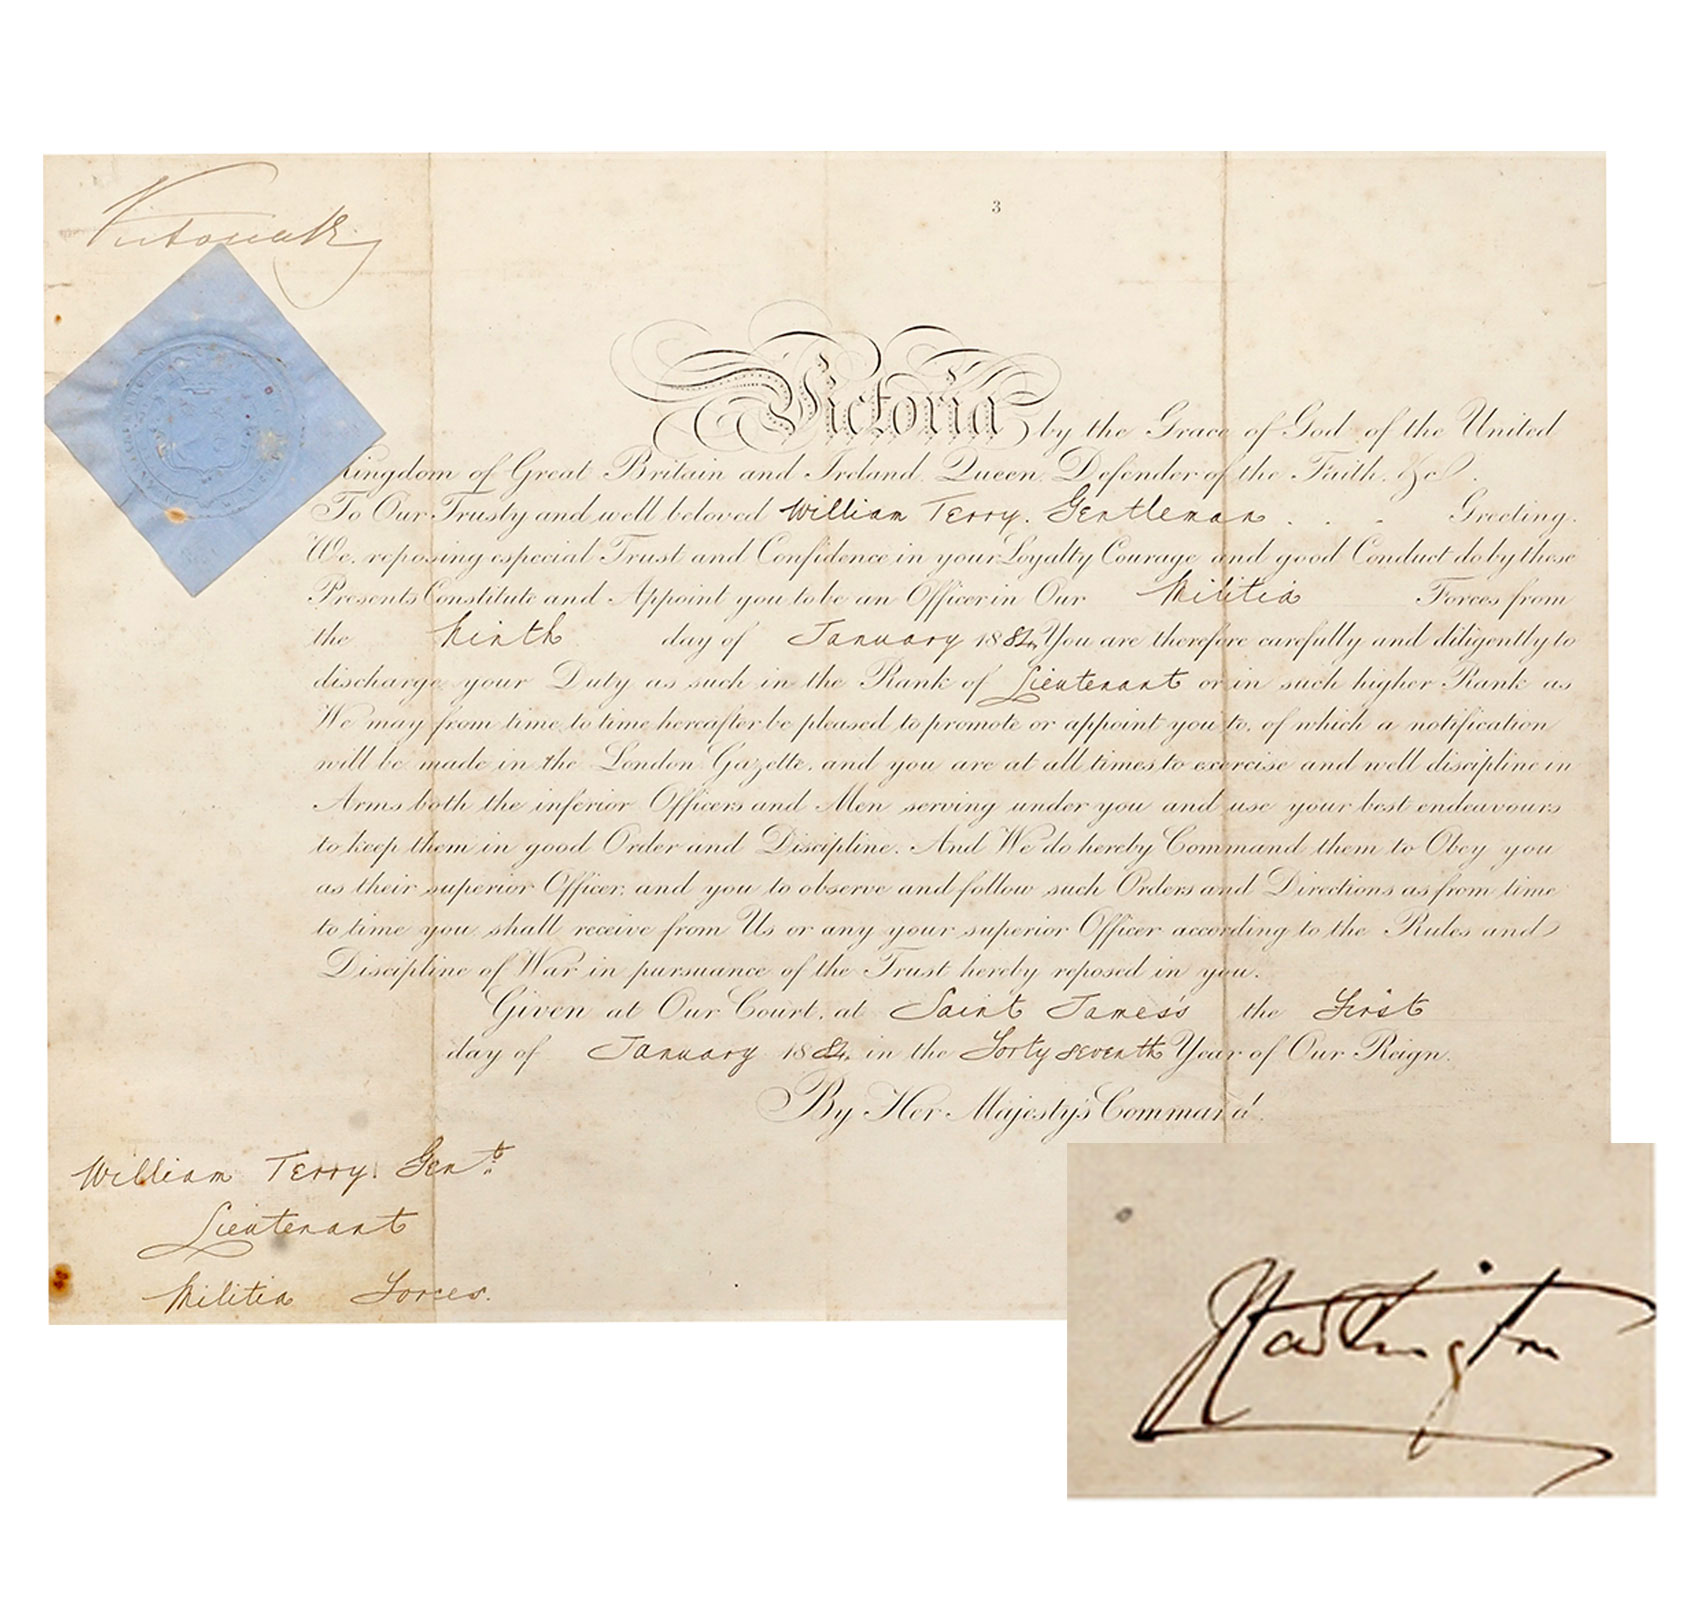 Victoria R
3
Victoria by the Grace of God of the United
Kingdom of Great Britain and Ireland, Queen, Defender of the Faith, &c.
To Our Trusty and well beloved William Terry, Gentleman . . . Greeting.
We, reposing especial Trust and Confidence in your Loyalty Courage and good Conduct do by these
Presents Constitute and Appoint you to be an Officer in Our Militia Forces from
the Ninth day of January 1884. You are therefore carefully and diligently to
discharge your Duty as such in the Rank of Lieutenant or in such higher Rank as
We may from time to time hereafter be pleased to promote or appoint you to, of which a notification
will be made in the London Gazette, and you are at all times to exercise and well discipline in
Arms both the inferior Officers and Men serving under you and use your best endeavours
to keep them in good Order and Discipline. And We do hereby Command them to Obey you
as their superior Officer, and you to observe and follow such Orders and Directions as from time
to time you shall receive from Us or any your superior Officer according to the Rules and
Discipline of War in pursuance of the Trust hereby reposed in you.
Given at Our Court, at Saint James's the First
day of January 1884 in the Forty seventh Year of Our Reign.
By Her Majesty's Command.
William Terry, Gent.
Lieutenant
Militia Forces.
Hartington